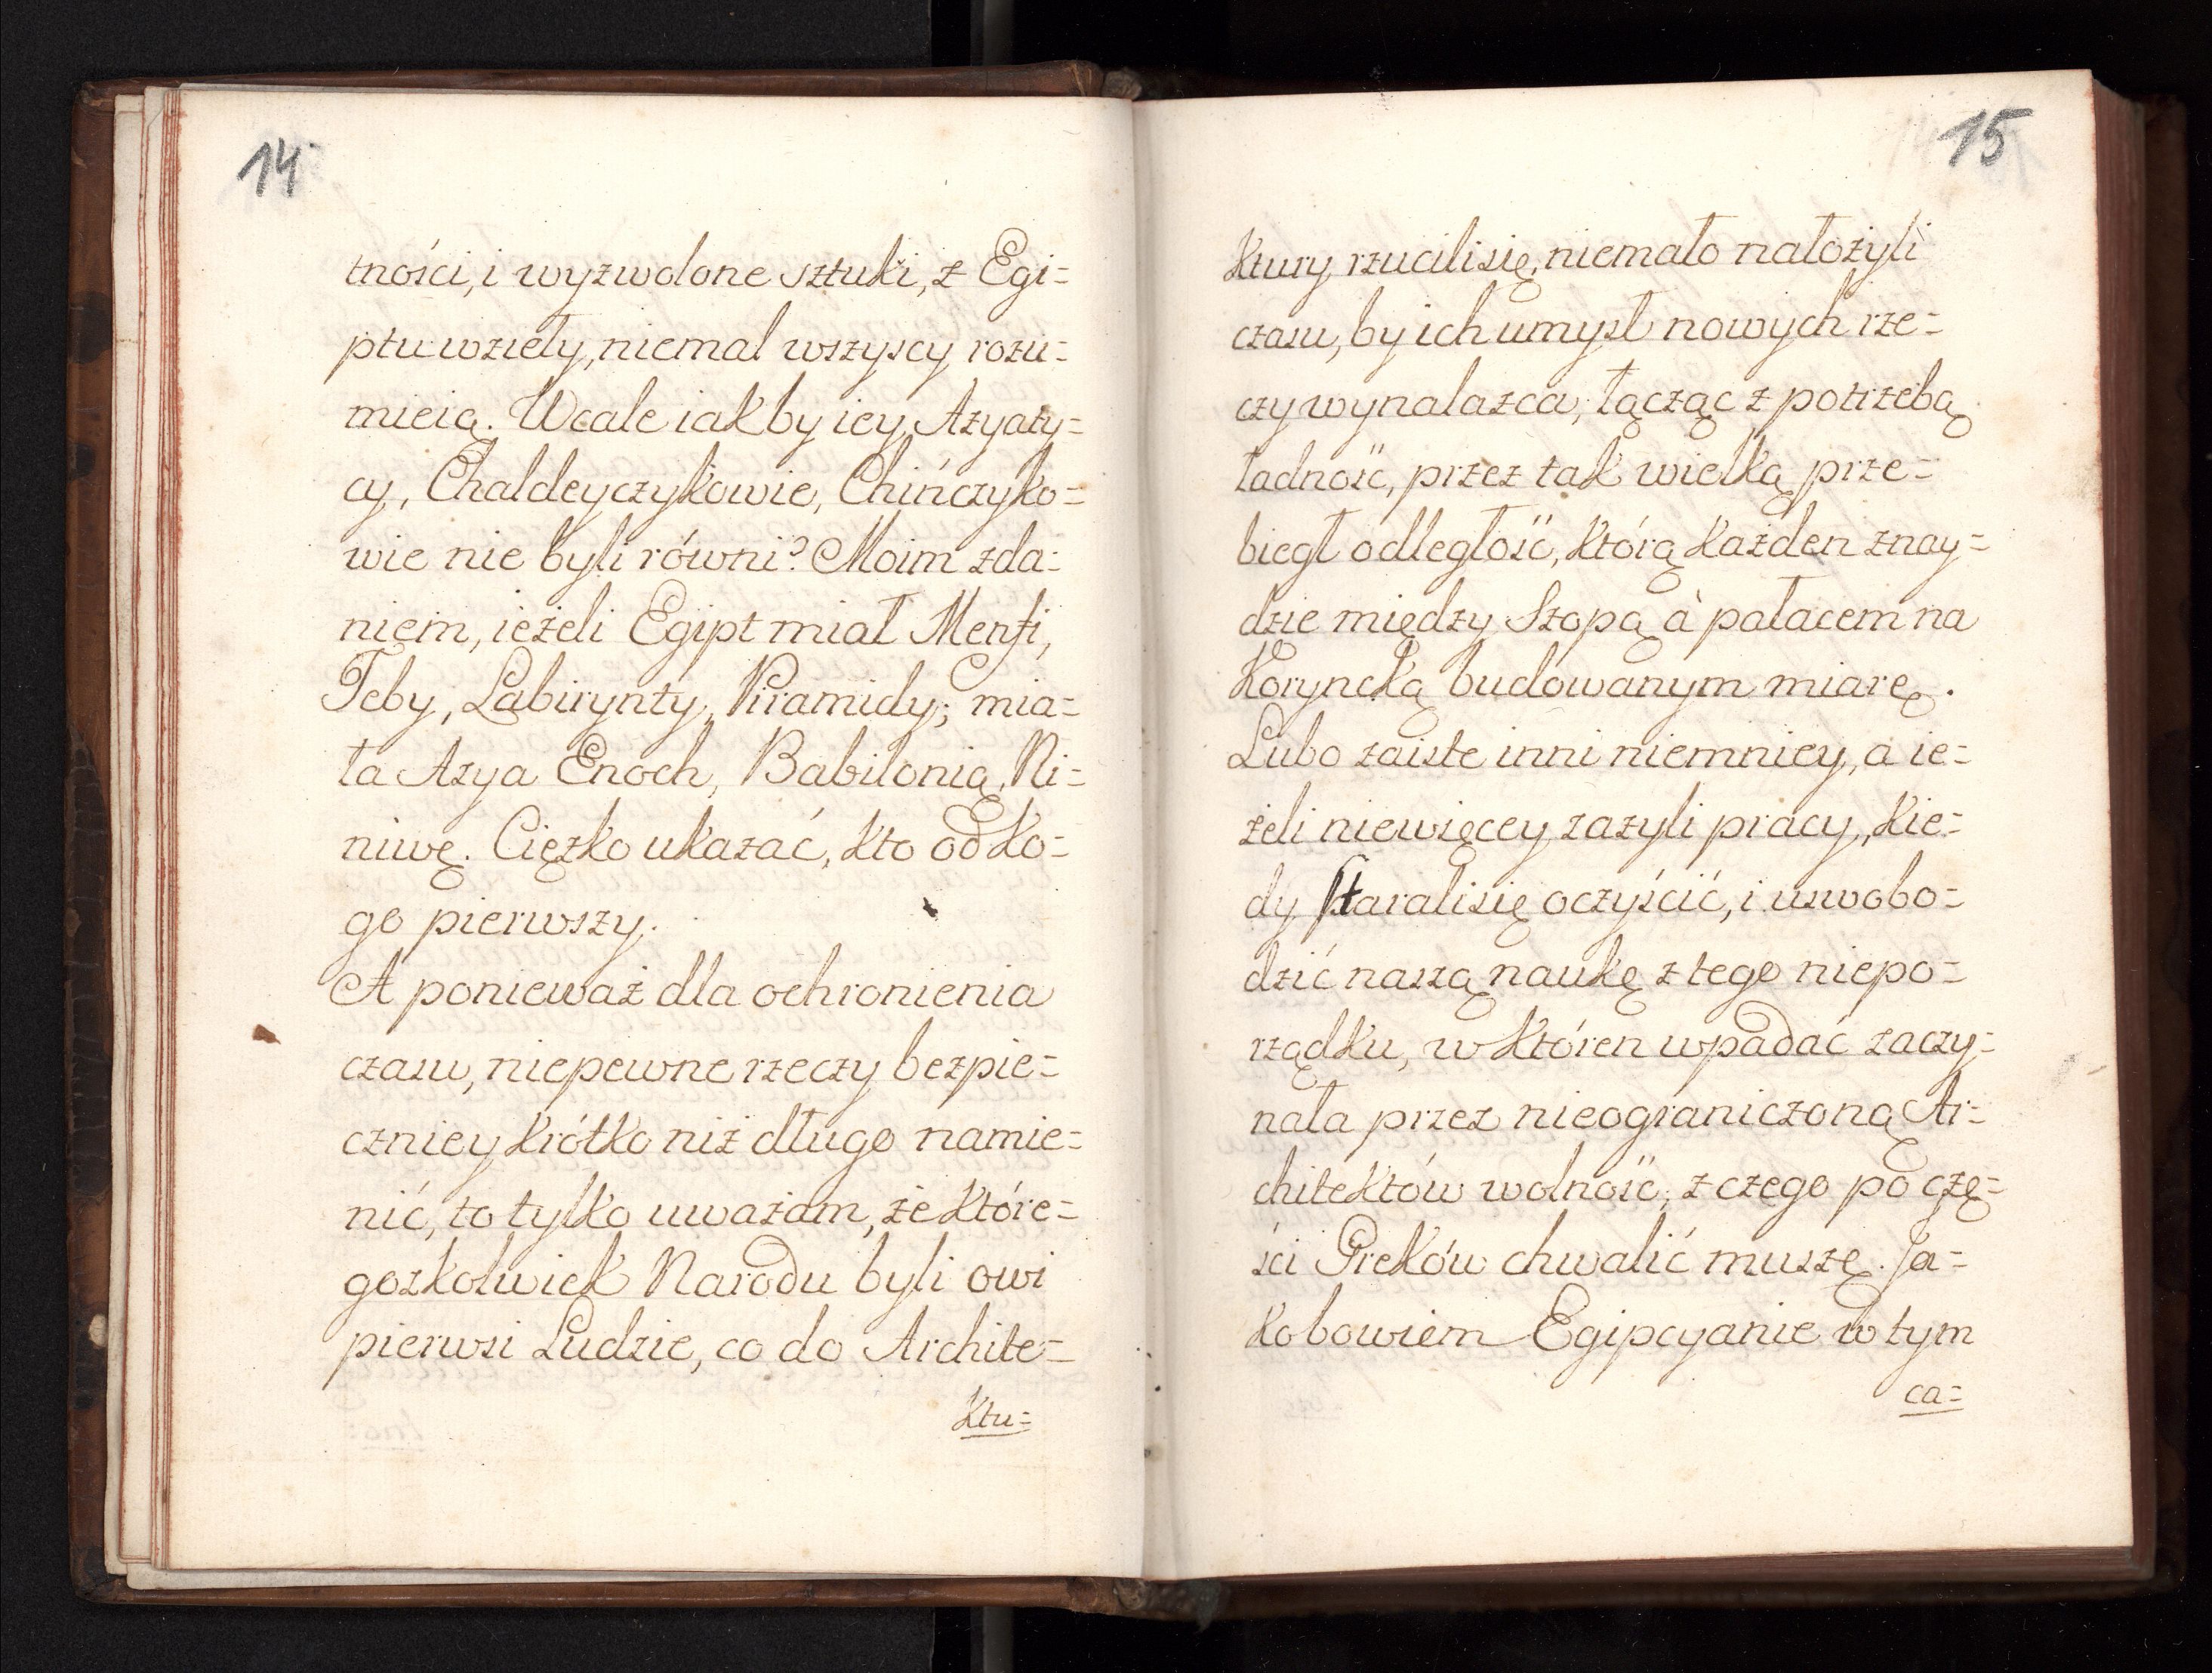 14
tności, i wyzwolone sztuki, z Egi=
ptu wzieły, niemal wszyscy rozu=
mieią. Wcale iakby iey Azyaty=
cy, Chaldeyczykowie, Chińczyko=
wie nie byli równi? Moim zda=
niem, ieżeli Egipt miał Menfi,
Teby, Labirynty, Piramidy; mia=
ła Azya Enoch, Babilonią, Ni=
niwę. Ciężko ukazać, kto od ko=
go pierwszy.
A ponieważ dla ochronienia
czasu, niepewne rzeczy bezpie=
czniey krótko niż długo namie=
nić, to tylko uważam, że które=
gozkolwiek Narodu byli owi
pierwsi Ludzie, co do Archite=
ktu=
15
ktury rzucilisię, niemało nałożyli
czasu, by ich umysł nowych rze=
czy wynalazca, łącząc z potrzebą
ładność, przez tak wielką prze=
biegł odległość, którą każden znay=
dzie między Szopą à pałacem na
Koryncką budowanym miarę.
Lubo zaiste inni niemniey, a ie=
żeli niewięcey zażyli pracy, kie=
dy staralisię oczyścić, i uswobo=
dzić naszą naukę z tego niepo=
rządku, w któren wpadać zaczy=
nała przez nieograniczoną Ar=
chitektów wolność, z czego po czę=
ści Greków chwalić muszę. Ja=
kobowiem Egipcyanie w tym
ca=